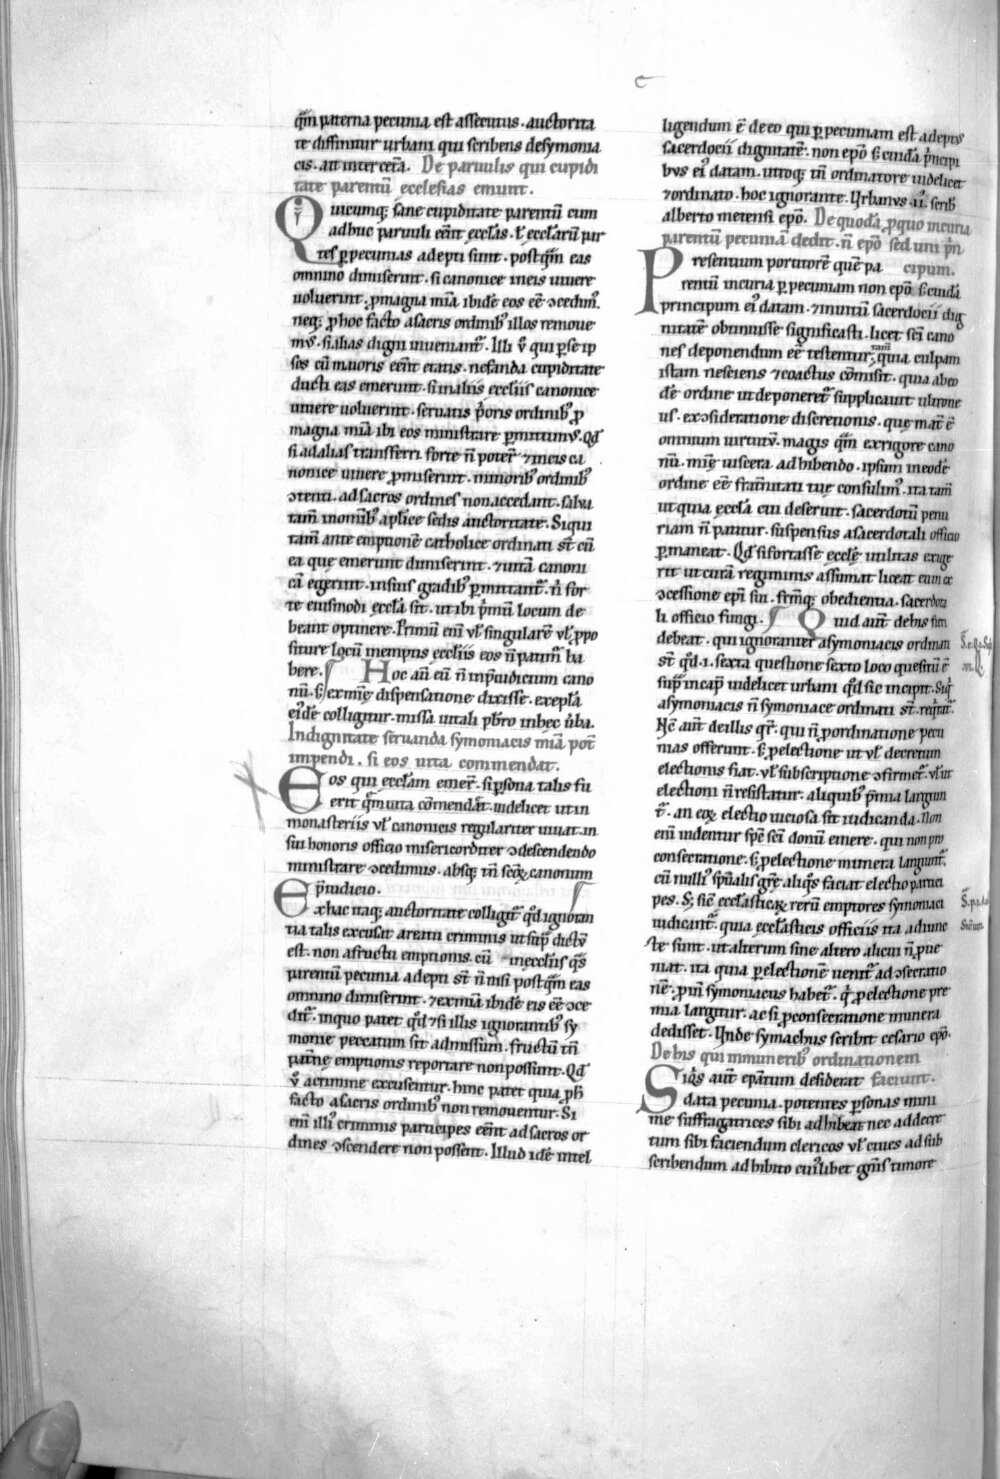 q̄m paterna pecunia est assecutus. auctorita
te diffinitur urbani qui scribens de symonia
cis. ait inter cetā. De paruulis qui cupidi
tate parentū ecclesias emunt.
Quicumq; sane cupiditate parentū cum
adhuc paruuli eēnt ecclās. ł ecclarū par
tes p̱ pecunias adepti sunt. postq̄m eas
omnino dimiserint. si canonice in eis uiuere
uoluerint. p̱ magna mīa ibidē eos eē ɔcedimꝰ.
neq; p̱ hoc facto a sacris ordinibꝰ illos remoue
mꝰ. si alias digni inueniant᷑. Illi ů qui p̱ se ip
sos cū maioris eēnt etatis. nefanda cupiditate
ducti eas emerunt. si in aliis eccliis canonice
uiuere uoluerint. seruatis p̓oris ordinibꝰ p̱
magna mīa ibi eos ministrare p̱mittimꝰ. Qđ
si ad alias transferri forte n̄ poter̄ ⁊ in eis ca
nonice uiuere p̱miserint. minoribꝰ ordinibꝰ
ɔtenti. ad sacros ordines non accedant. salua
tam̄ in omībꝰ aplīce sedis auctoritate. Si qui
tam̄ ante emptionē catholice ordinati st̄ cū
ea que emerunt dimiserint. ⁊ uitā canoni
cā egerint. in suis gradibꝰ p̱mittant᷑. n̓ for
te eiusmodi ecclā sit. ut ibi p̓mū locum de
beant optinere. Primū eni vł singularē vł p̱po
siture locū in emptis eccliis eos n̄ patim᷑ ha
bere. Hoc aū eū n̄ in p̓iudicium cano
nū. s; ex mīe dispensatione dixisse. ex epłā
eiꝰdē colligitur. missā uitali p̱bro in hec ůba.
Indignitate seruanda symoniacis mīa pot̄
impendi. si eos uita commendat.
Eos qui ecclam emer̄. si p̱sona talis fu
erit q̄m uita cōmendāt. uidelicet ut in
monasteriis vł canonicis regulariter uiuat. in
sui honoris officio misericorditer ɔdescendendo
ministrare ɔcedimus. absq; tn̄ scōꝝ canonum
p̓iudicio.
Ex hac itaq; auctoritate colligit᷑ qđ ignoran
tia talis excusat a reatu criminis ut sup̱ dictū
est. non a fructu emptionis. cū in eccliis q̄s
parentū pecunia adepti st̄ n̄ nisi postq̄m eas
omnino dimiserint. ⁊ ex mīa ibidē eis eē ɔce
dit᷑. in quo patet qđ ⁊ si illis ignorantibꝰ sy
monie peccatum sit admissum. fructū tn̄
patn̄e emptionis reportare non possunt. Qđ
ů a crimine excusentur. hinc patet quia p̱ h̓
facto a sacris ordinibꝰ non remouentur. Si
eni illiꝰ criminis participes eēnt ad sacros or
dines ɔscendere non possent. Illud idē intel
ligendum ē de eo qui p̱ pecuniam est adeptꝰ
sacerdocii dignitatē. non ep̄o s; cuidā p̓ncipi
bus eiꝰ datam. utroq; tn̄ ordinatore uidelicet
⁊ ordinato. hoc ignorante. Urbanus .ii. scrib̄
alberto metensi ep̄o. De quodā p̱ quo incuria
parentū pecuniā dedit. n̄ ep̄o sed uni p̓n
cipum.
Presentium portitorē quē pa
rentū incuria p̱ pecuniam non ep̄o s; cuidā
principum eiꝰ datam. ⁊ munū sacerdocii dig
nitatē obtinuisse significasti. licet scī cano
nes deponendum eē testentur. tam̄ quia culpam
istam nesciens ⁊ coactus cōmisit. quia ab eo
dē ordine ut deponeret᷑ supplicauit ultrone
us. ex ɔsideratione discretionis. que mat̄ ē
omnium uirtutū. magis q̄m ex rigore cano
nū. mīe uiscera adhibendo. ipsum in eodē
ordine eē fraternitati tue consulimꝰ. ita tam̄
ut quia ecclā cui deseruit. sacerdotū penu
riam n̄ patitur. suspensus a sacerdotali officio
p̱maneat. Qđ si fortasse eccłe utilitas exige
rit ut curā regiminis assumat liceat eum ex
ɔcessione ep̄i sui. fratrūq; obedientia. sacerdota
li officio fungi. Quid aūt de his fieri
debeat. qui ignoranter a symoniacis ordinati
st̄ qđ .i. sexta questione sexto loco quesitū ē
sup̱ in cap̄ uidelicet urbani qđ sic incipit. Siq̓
a symoniacis n̄ symoniace ordinati st̄. req̓rat᷑.
Nc̄ aūt de illis qr̄. qui n̄ p̱ ordinatione pecu
nias offerunt. s; p̱ electione ut vł decretum
electionis fiat. vł subscriptione ɔfirmet᷑. vł ut
electioni n̄ resistatur. aliquibꝰ p̄mia largiun
t᷑. an eoꝝ electio uiciosa sit iudicanda. Non
eni uidentur sp̄c scī donū emere. qui non pro
consecratione. s; p̱ electione munera largiunt᷑.
cū nulliꝰ sp̄ualis gr̄e aliq̄s faciat electio partici
pes. S; sic̄ ecclasticaꝝ rerū emptores symoniaci
iudicant᷑. quia ecclasticis officiis ita adiunc
te sunt. ut alterum sine altero alicui n̄ p̱ue
niat. ita quia p̱ electionē uenit᷑ ad ɔsecratio
nē. p̱ in̄ symoniacus habet᷑. q̓ p̱ electione pre
mia largitur. ac si p̱ consecratione munera
dedisset. Unde symachus scribit cesario ep̄o.
De his qui in muneribꝰ ordinationem
faciunt.
Siq̓s aūt ep̄atum desiderat
data pecunia. potentes p̱sonas mini
me suffragatrices sibi adhibeat nec ad decre
tum sibi faciendum clericos vł ciues ad sub
scribendum adhibito cuiꝰlibet gn̄is timore